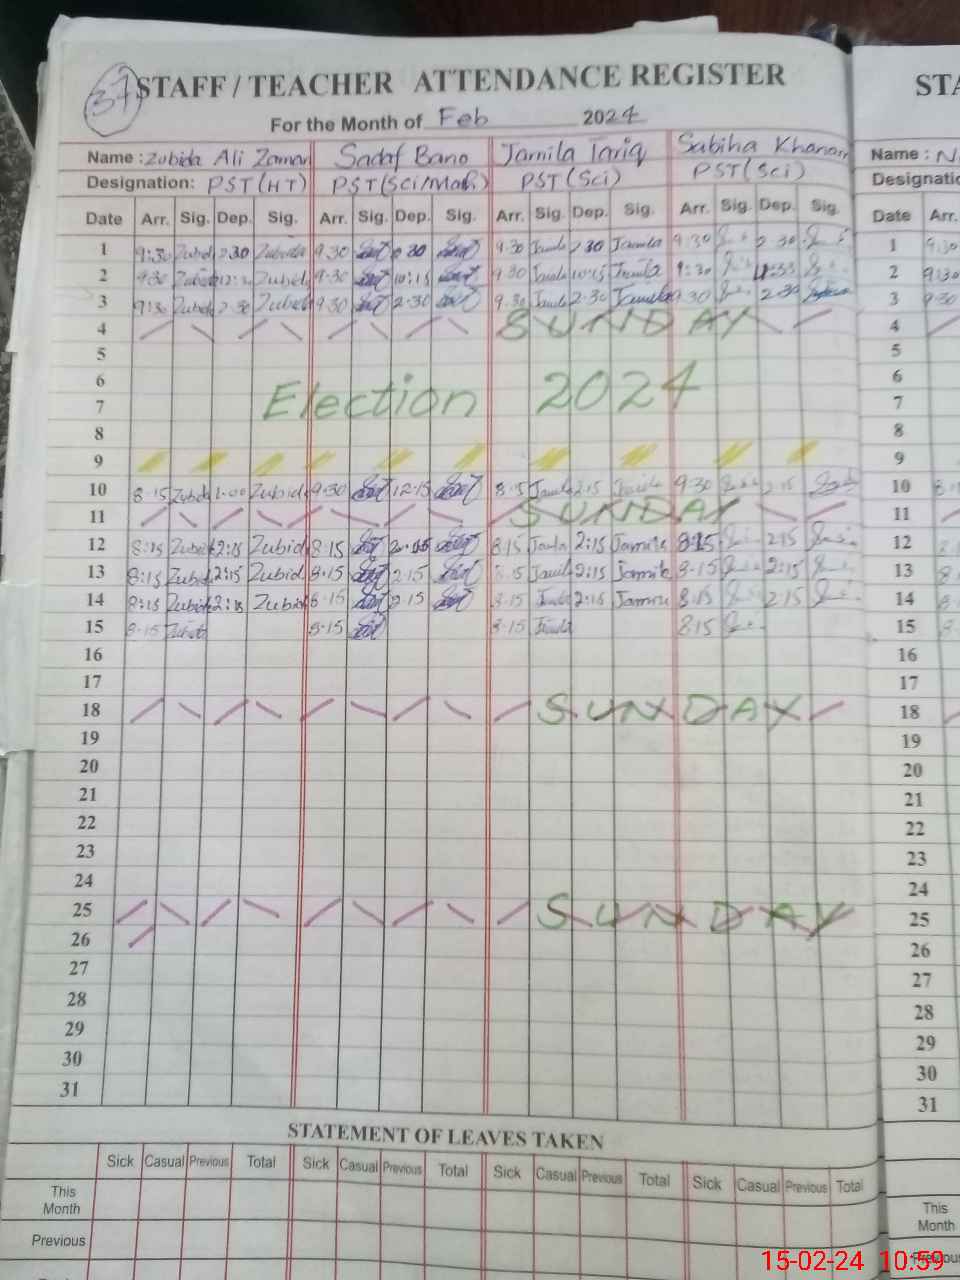 37
STAFF / TEACHER ATTENDANCE REGISTER STA
For the Month of Feb 2024
Name : Zubida Ali Zaman Sadaf Bano Jamila Tariq Sabiha Khanam Name : N
Designation: PST (HT) PST(Sci/Math) PST (Sci) PST (Sci) Designatio
Date Arr. Sig. Dep. Sig. Arr. Sig. Dep. Sig. Arr. Sig. Dep. Sig. Arr. Sig. Dep. Sig. Date Arr.
1 9:30 Zubida 2.30 Zubida 9.30 9.30 Jamila 2.30 Jamila 9.30 2.30 1 9.30
2 9.30 Zubida Zubida 9.30 10:15 9.30 Jamila 10:15 Jamila 9:30 2 9:30
3 9:30 Zubida 2.30 Zubida 9.30 2.30 9.30 Jamila 2.30 Jamila 9.30 2.30 3 9.30
4 SUNDAY 4
5 5
6 6
Election 2024
7 7
8 8
9 9
10 8.15 Zubida 1.00 Zubida 9.30 12.15 8.15 Jamila 2.15 Jamila 9.30 2.15 10
11 SUNDAY 11
12 8:15 Zubida 2:15 Zubida 8.15 8.15 Jamila 2:15 Jamila 8.15 2.15 12
13 8:15 Zubida 2:15 Zubida 8.15 2.15 8.15 Jamila 2:15 Jamila 8.15 2:15 13
14 8:15 Zubida 2:15 Zubida 8.15 2.15 8.15 Jamila 2:15 Jamila 8.15 2.15 14
15 8.15 Zubida 8.15 8.15 Jamila 8.15 15
16 16
17 17
18 SUNDAY 18
19 19
20 20
21 21
22 22
23 23
24 24
25 SUNDAY 25
26 26
27 27
28 28
29 29
30 30
31 31
STATEMENT OF LEAVES TAKEN
Sick Casual Previous Total Sick Casual Previous Total Sick Casual Previous Total Sick Casual Previous Total
This Month This Month
Previous Previous
15-02-24 10:59